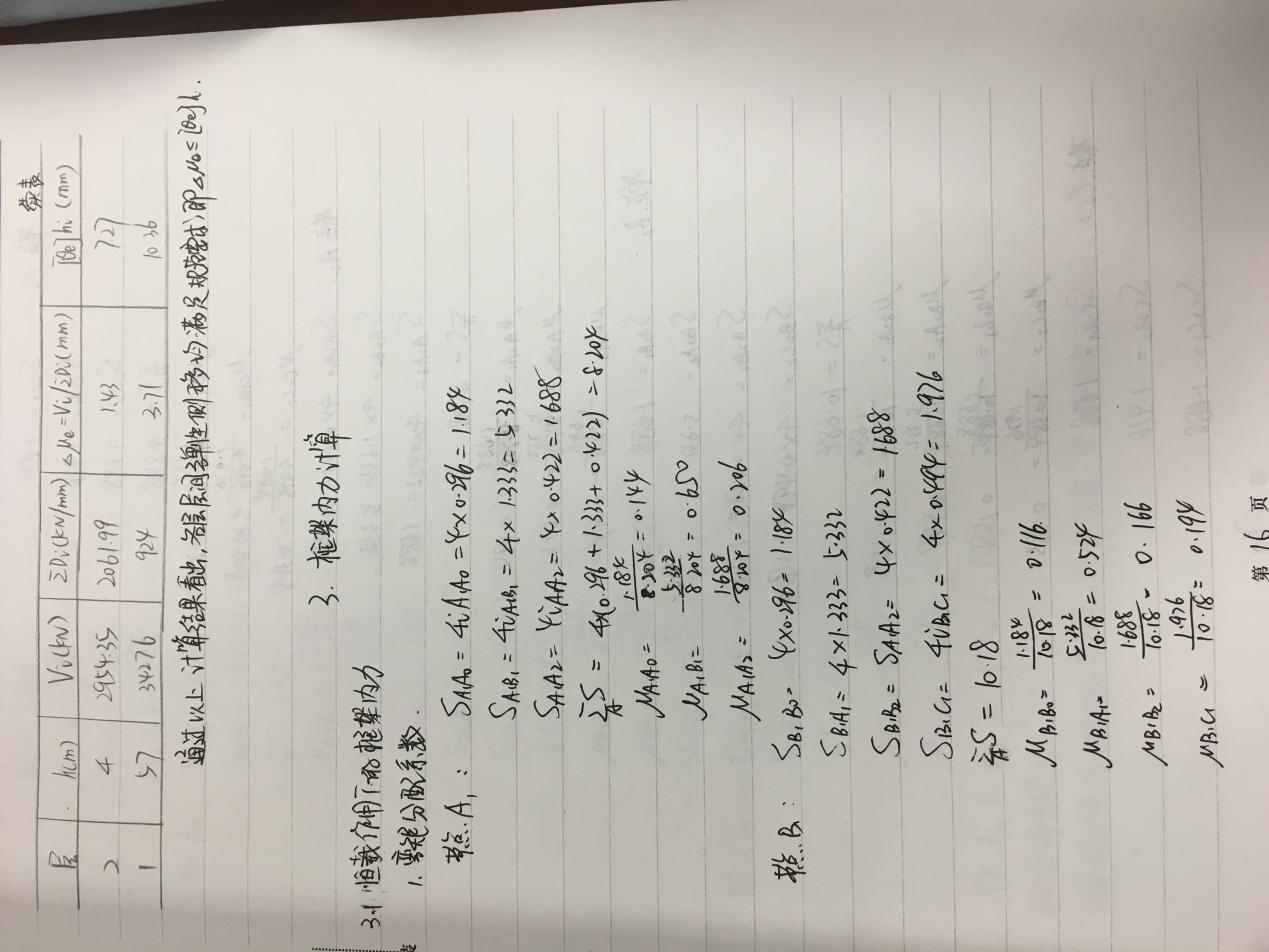 续表
层 h(m) Vi(kN) ΣDi(kN/mm) △μe=Vi/ΣDi(mm) [θe]hi(mm)
2 4 2954.35 2061.99 1.43 7.27
1 5.7 3427.6 924 3.71 10.36
通过以上计算结果看出,各层层间弹性侧移均满足规范要求,即△μe≤[θe]h.
3. 框架内力计算
3.1 恒载作用下的框架内力
1. 弯矩分配系数.
节点A₁: SA₁A₀=4iA₁A₀=4×0.296=1.184
SA₁B₁=4iA₁B₁=4×1.333=5.332
SA₁A₂=4iA₁A₂=4×0.422=1.688
ΣS=4×(0.296+1.333+0.422)=8.204
A
μA₁A₀=1.184/8.204=0.144
μA₁B₁=5.332/8.204=0.650
μA₁A₂=1.688/8.204=0.206
节点B₁: SB₁B₀=4×0.296=1.184
SB₁A₁=4×1.333=5.332
SB₁B₂=SA₁A₂=4×0.422=1.688
SB₁C₁=4iB₁C₁=4×0.494=1.976
ΣS=10.18
μB₁B₀=1.184/10.18=0.116
μB₁A₁=5.332/10.18=0.524
μB₁B₂=1.688/10.18=0.166
μB₁C₁=1.976/10.18=0.194
第 16 页